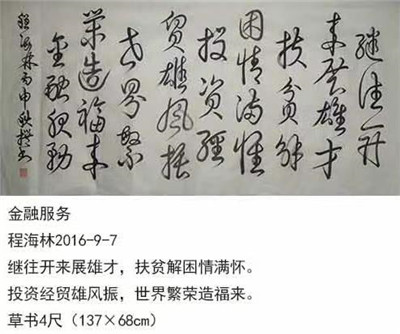 继往开
来展雄才
扶贫解
困情满怀
投资经
贸雄风振
世界繁
荣造福来
金融服务
程海林丙申秋撰书
金融服务
程海林2016-9-7
继往开来展雄才，扶贫解困情满怀。
投资经贸雄风振，世界繁荣造福来。
草书4尺（137×68cm）